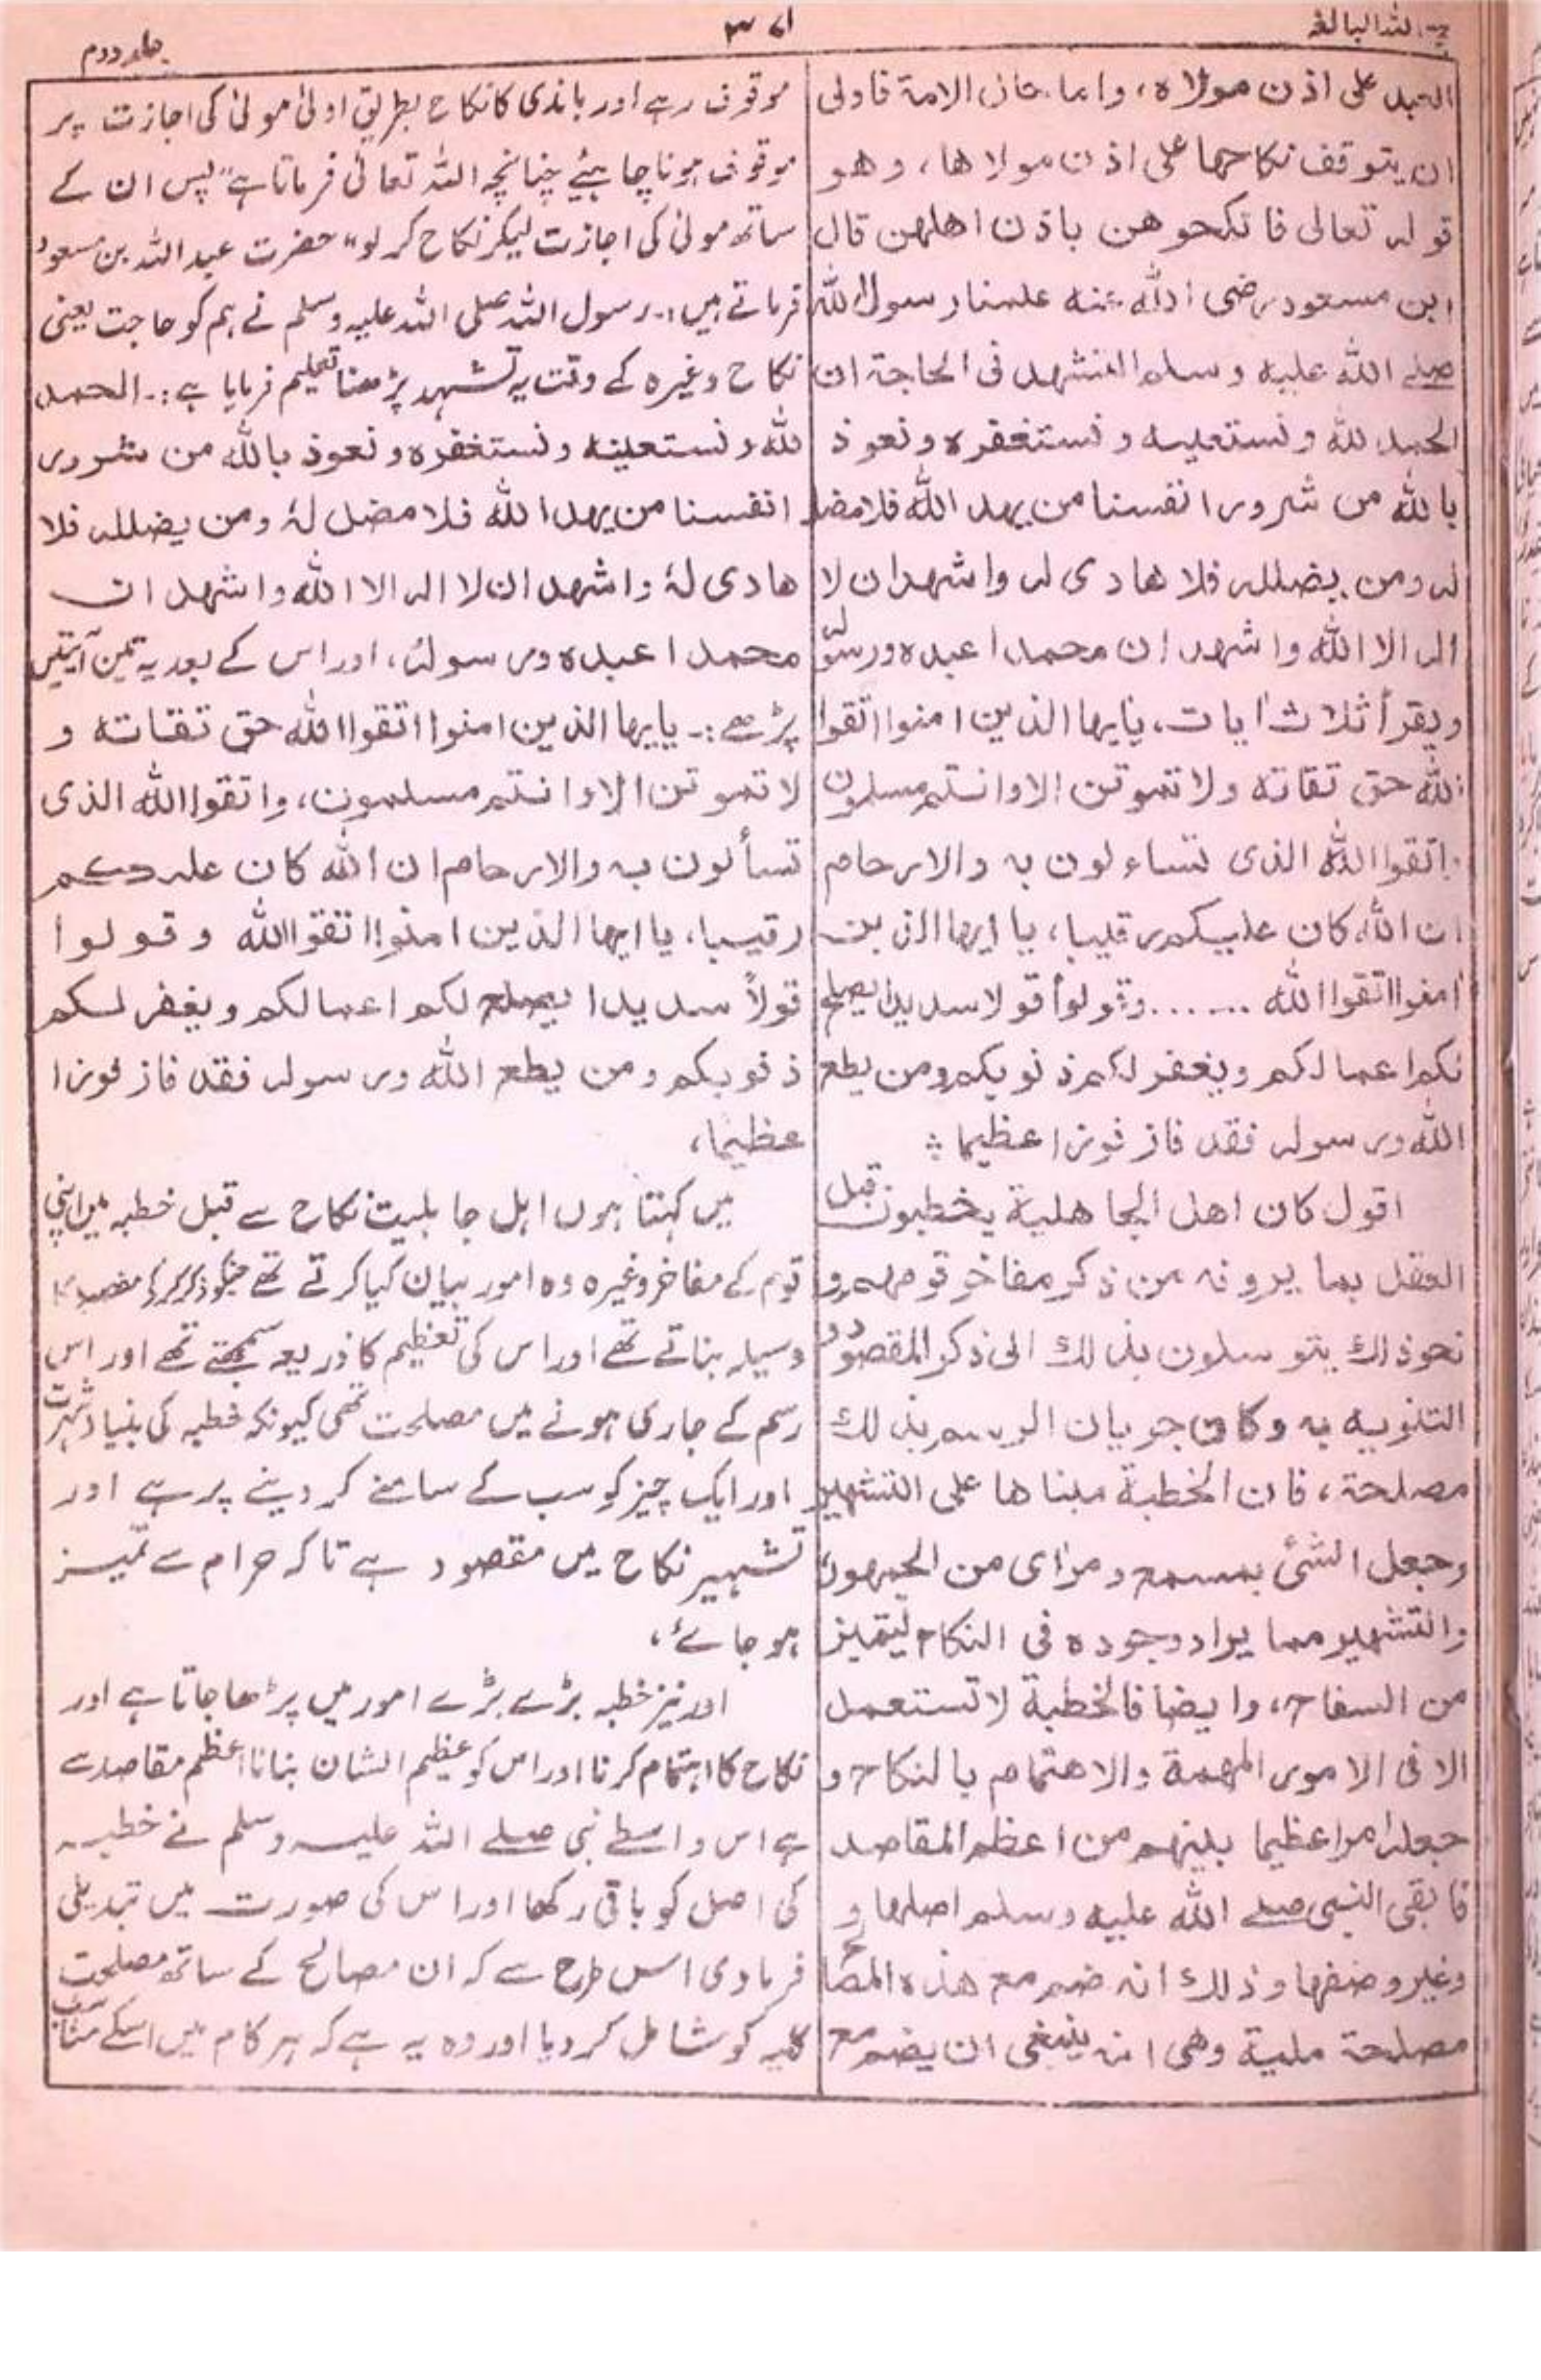 اللہ البالغہ
۳۷۱
جلد دوم
العبد على اذن مولاه، واما حال الامة فاولى
ان يتوقف نكاحها على اذن مولاها، وهو
قوله تعالى فانكحوهن باذن اهلهن قال
ابن مسعود رضى الله عنه علمنا رسول الله
صلے الله عليه وسلم التشهد فى الحاجة ان
الحمد لله ونستعينه ونستغفره ونعوذ
بالله من شرور انفسنا من يهد الله فلا مضل
له ومن يضلله فلا هادى له واشهد ان لا
اله الا الله واشهد ان محمدا عبده ورسوله
ويقرأ ثلاث اٰيات، يٰايها الذين امنوا اتقوا
الله حق تقاته ولا تموتن الا وانتم مسلمون
واتقوا الله الذى تساءلون به والارحام
ان الله كان عليكم رقيبا، يا ايها الذين
امنوا اتقوا الله ....... وقولوا قولا سديدا يصلح
لكم اعمالكم ويغفر لكم ذنوبكم ومن يطع
الله ورسوله فقد فاز فوزا عظيما ؞
اقول كان اهل الجاهلية يخطبون قبل
العقد بما يرونه من ذكر مفاخر قومهم و
نحو ذلك يتوسلون بذلك الى ذكر المقصود و
التنويه به وكان جريان الرسم بذلك
مصلحة، فان الخطبة مبناها على التشهير
وجعل الشئ بمسمع ومراى من الجمهور
والتشهير مما يراد وجوده فى النكاح ليتميز
من السفاح، وايضا فالخطبة لا تستعمل
الا فى الامور المهمة والاهتمام بالنكاح و
جعله امرا عظيما بينهم من اعظم المقاصد
فابقى النبى صلے الله عليه وسلم اصلها و
وغير وصفها وذلك انه ضم مع هذه المصالح
مصلحة ملية وهى انه ينبغى ان يضم مع
موقوف رہے اور باندی کا نکاح بطریق اولیٰ مولیٰ کی اجازت پر
موقوف ہونا چاہیئے چنانچہ اللہ تعالیٰ فرماتا ہے "پس ان کے
ساتھ مولیٰ کی اجازت لیکر نکاح کر لو" حضرت عبداللہ بن مسعود
فرماتے ہیں:۔ رسول اللہ صلی اللہ علیہ وسلم نے ہم کو حاجت یعنی
نکاح وغیرہ کے وقت یہ تشہد پڑھنا تعلیم فرمایا ہے:۔ الحمد
لله ونستعينه ونستغفره ونعوذ بالله من شرور
انفسنا من يهد الله فلا مضل لهٗ ومن يضلله فلا
هادى لهٗ واشهد ان لا اله الا الله واشهد ان
محمدا عبده ورسوله، اور اس کے بعد یہ تین آیتیں
پڑھے:۔ يايها الذين امنوا اتقوا الله حق تقاته و
لا تموتن الا وانتم مسلمون، واتقوا الله الذى
تسألون به والارحام ان الله كان عليكم
رقيبا، يا ايها الذين امنوا اتقوا الله وقولوا
قولاً سديدا يصلح لكم اعمالكم ويغفر لكم
ذنوبكم ومن يطع الله ورسوله فقد فاز فوزا
عظيما،
میں کہتا ہوں اہل جاہلیت نکاح سے قبل خطبہ میں اپنی
قوم کے مفاخر وغیرہ وہ امور بیان کیا کرتے تھے جنکو ذکر کر کے مقصد کا
وسیلہ بناتے تھے اور اس کی تعظیم کا ذریعہ سمجھتے تھے اور اس
رسم کے جاری ہونے میں مصلحت تھی کیونکہ خطبہ کی بنیاد شہرت
اور ایک چیز کو سب کے سامنے کر دینے پر ہے اور
تشہیر نکاح میں مقصود ہے تاکہ حرام سے تمیز
ہو جائے،
اور نیز خطبہ بڑے بڑے امور میں پڑھا جاتا ہے اور
نکاح کا اہتمام کرنا اور اس کو عظیم الشان بنانا اعظم مقاصد سے
ہے اس واسطے نبی صلے اللہ علیہ وسلم نے خطبہ
کی اصل کو باقی رکھا اور اس کی صورت میں تبدیلی
فرما دی اس طرح سے کہ ان مصالح کے ساتھ مصلحت
کلیہ کو شامل کر دیا اور وہ یہ ہے کہ ہر کام میں اسکے مناسب